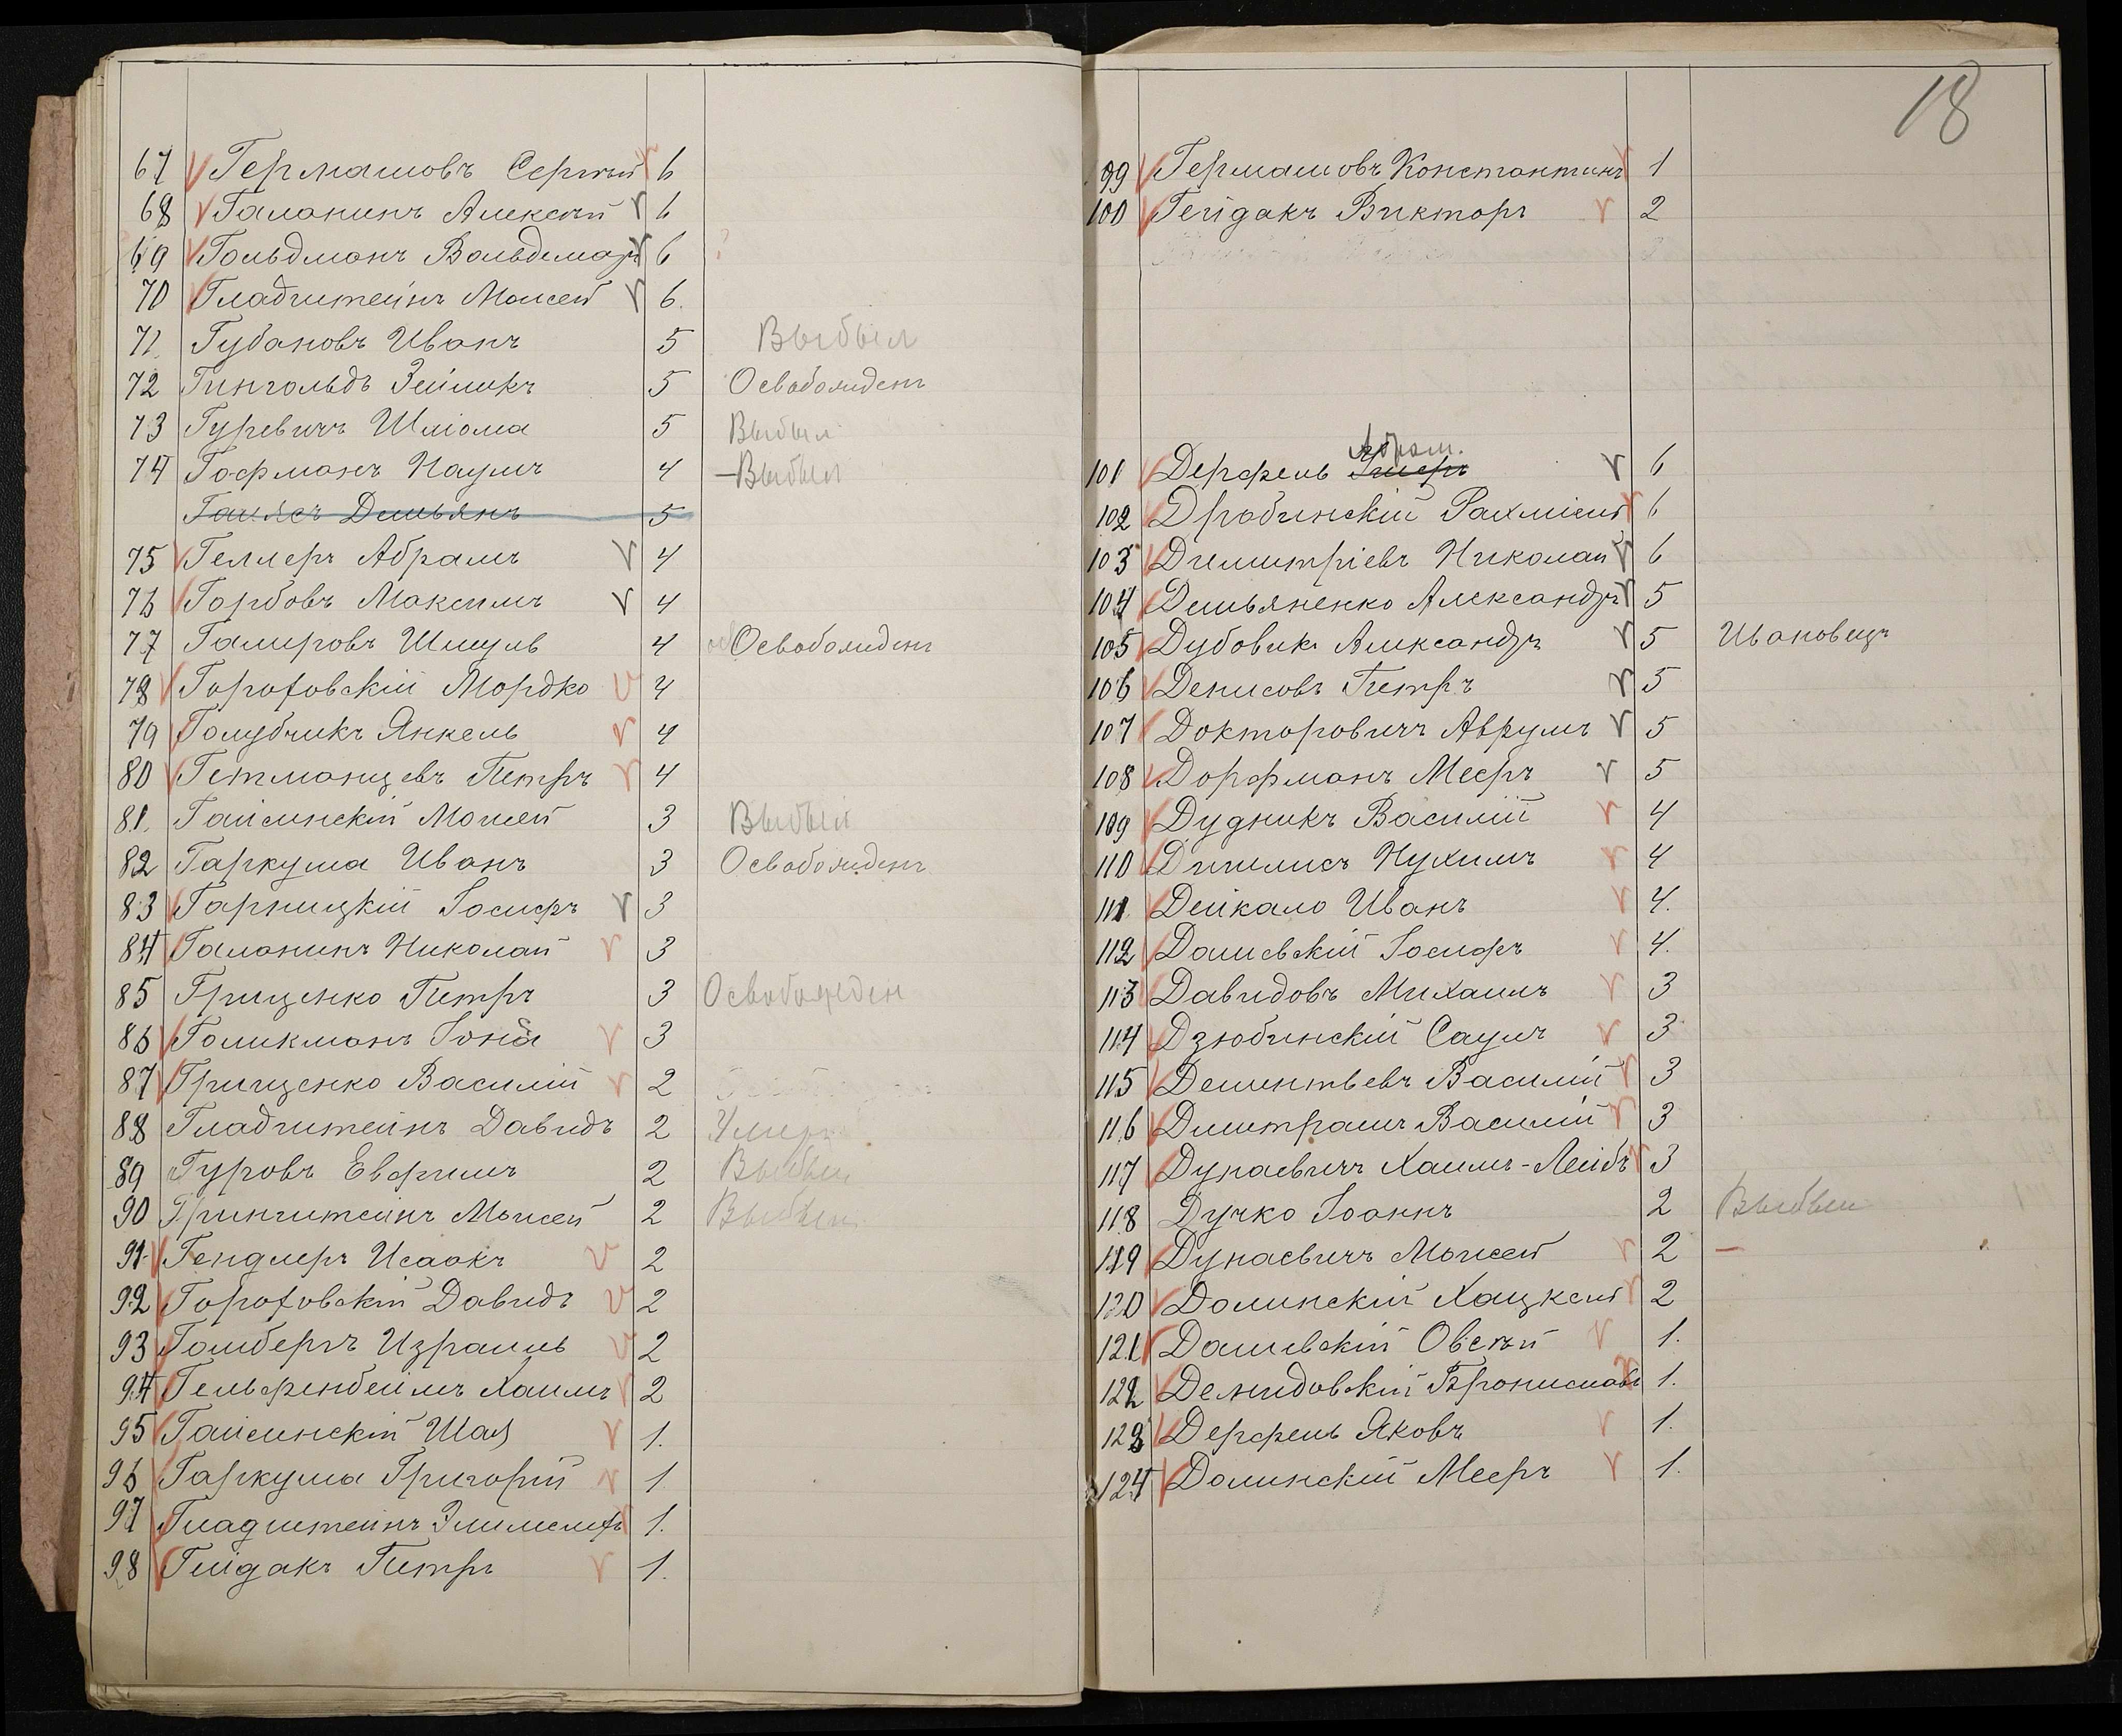 67 Гермашовъ Сергѣй 6
68 Галанинъ Алексѣй 6
69 Гольдманъ Вольдемаръ 6 ?
70 Гладштейнъ Моисей 6.
71 Губановъ Иванъ 5 Выбыл
72 Гингольдъ Зейликъ 5 Освобожденъ
73 Гуревичъ Шліома 5 Выбыл
74 Гофманъ Наумъ 4 Выбыл
Демьянъ 5
75 Геллеръ Абрамъ 4
76 Горбовъ Максимъ 4
77 Галперовъ Шмуль 4 Освобожденъ
78 Гороховскій Мордко 4
79 Голубчикъ Янкель 4
80 Гетманцевъ Петръ 4
81. Гайсинскій Моисей 3 Выбыл
82 Гаркуша Иванъ 3 Освобожденъ
83 Гарницкій Іосифъ 3
84 Галанинъ Николай 3
85 Грищенко Петръ 3 Освобожден
86 Гошкманъ Іона 3
87 Грищенко Василій 2
88 Гладштейнъ Давидъ 2 Умеръ
89 Гуровъ Евфимъ 2 Выбыл
90 Гринштейнъ Моисей 2 Выбыл
91 Гендлеръ Исаакъ 2
92 Гороховскій Давидъ 2
93 Гомбергъ Израиль 2
94 Гельфенбеймъ Хаимъ 2
95 Гайсинскій Шая 1.
96 Гаркуша Григорій 1
97 Гладштейнъ Элимелехъ 1.
98 Гейдакъ Петръ 1.
18
99 Гермашовъ Константинъ 1
100 Гейдакъ Викторъ 2
Абрам.
101 Дерфель 6
102 Драбинскій Рахміель 6
103 Димитріевъ Николай 6
104 Демьяненко Александръ 5
105 Дубовик Александръ 5 Ивановецъ
106 Денисовъ Петръ 5
107 Докторовичъ Аврумъ 5
108 Дорфманъ Мееръ 5
109 Дудникъ Василій 4
110 Нухимъ 4
111 Дейкало Иванъ 4.
112 Дашевскій Іосифъ 4.
113 Давидовъ Михаилъ 3
114 Дзюбинскій Саулъ 3
115 Дементьевъ Василій 3
116 Димитрашъ Василій 3
117 Дунаевичъ Хаимъ-Лейбъ 3
118 Дучко Іоаннъ 2 Выбыл
119 Дунаевичъ Моисей 2 —
120 Долинскій Хацкель 2
121 Дашевскій Овсѣй 1.
122 Демидовскій Брониславъ 1.
123 Дерфель Яковъ 1.
124 Долинскій Мееръ 1.